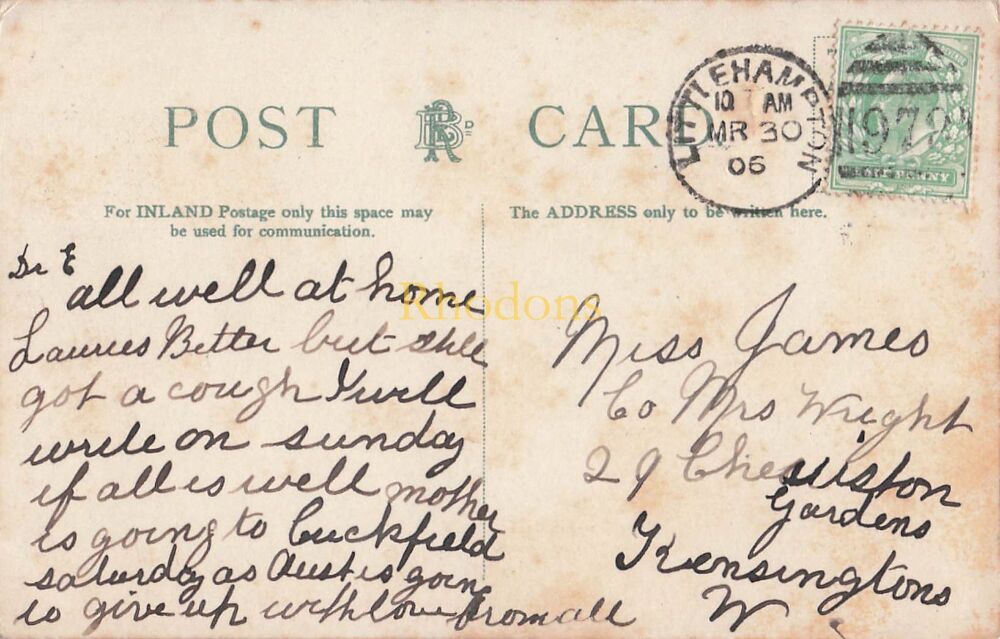 POST CARD
LITTLEHAMPTON
10 AM
MR 30
06
For INLAND Postage only this space may
be used for communication.
The ADDRESS only to be written here.
Dr E
all well at home
Lauries Better but still
got a cough I will
write on sunday
if all is well mother
is going to Cuckfield
saturday as Aust is going
to give up with love from all
Miss James
Co Mrs Wright
29
Gardens
Kensingtons
W
Rhodons